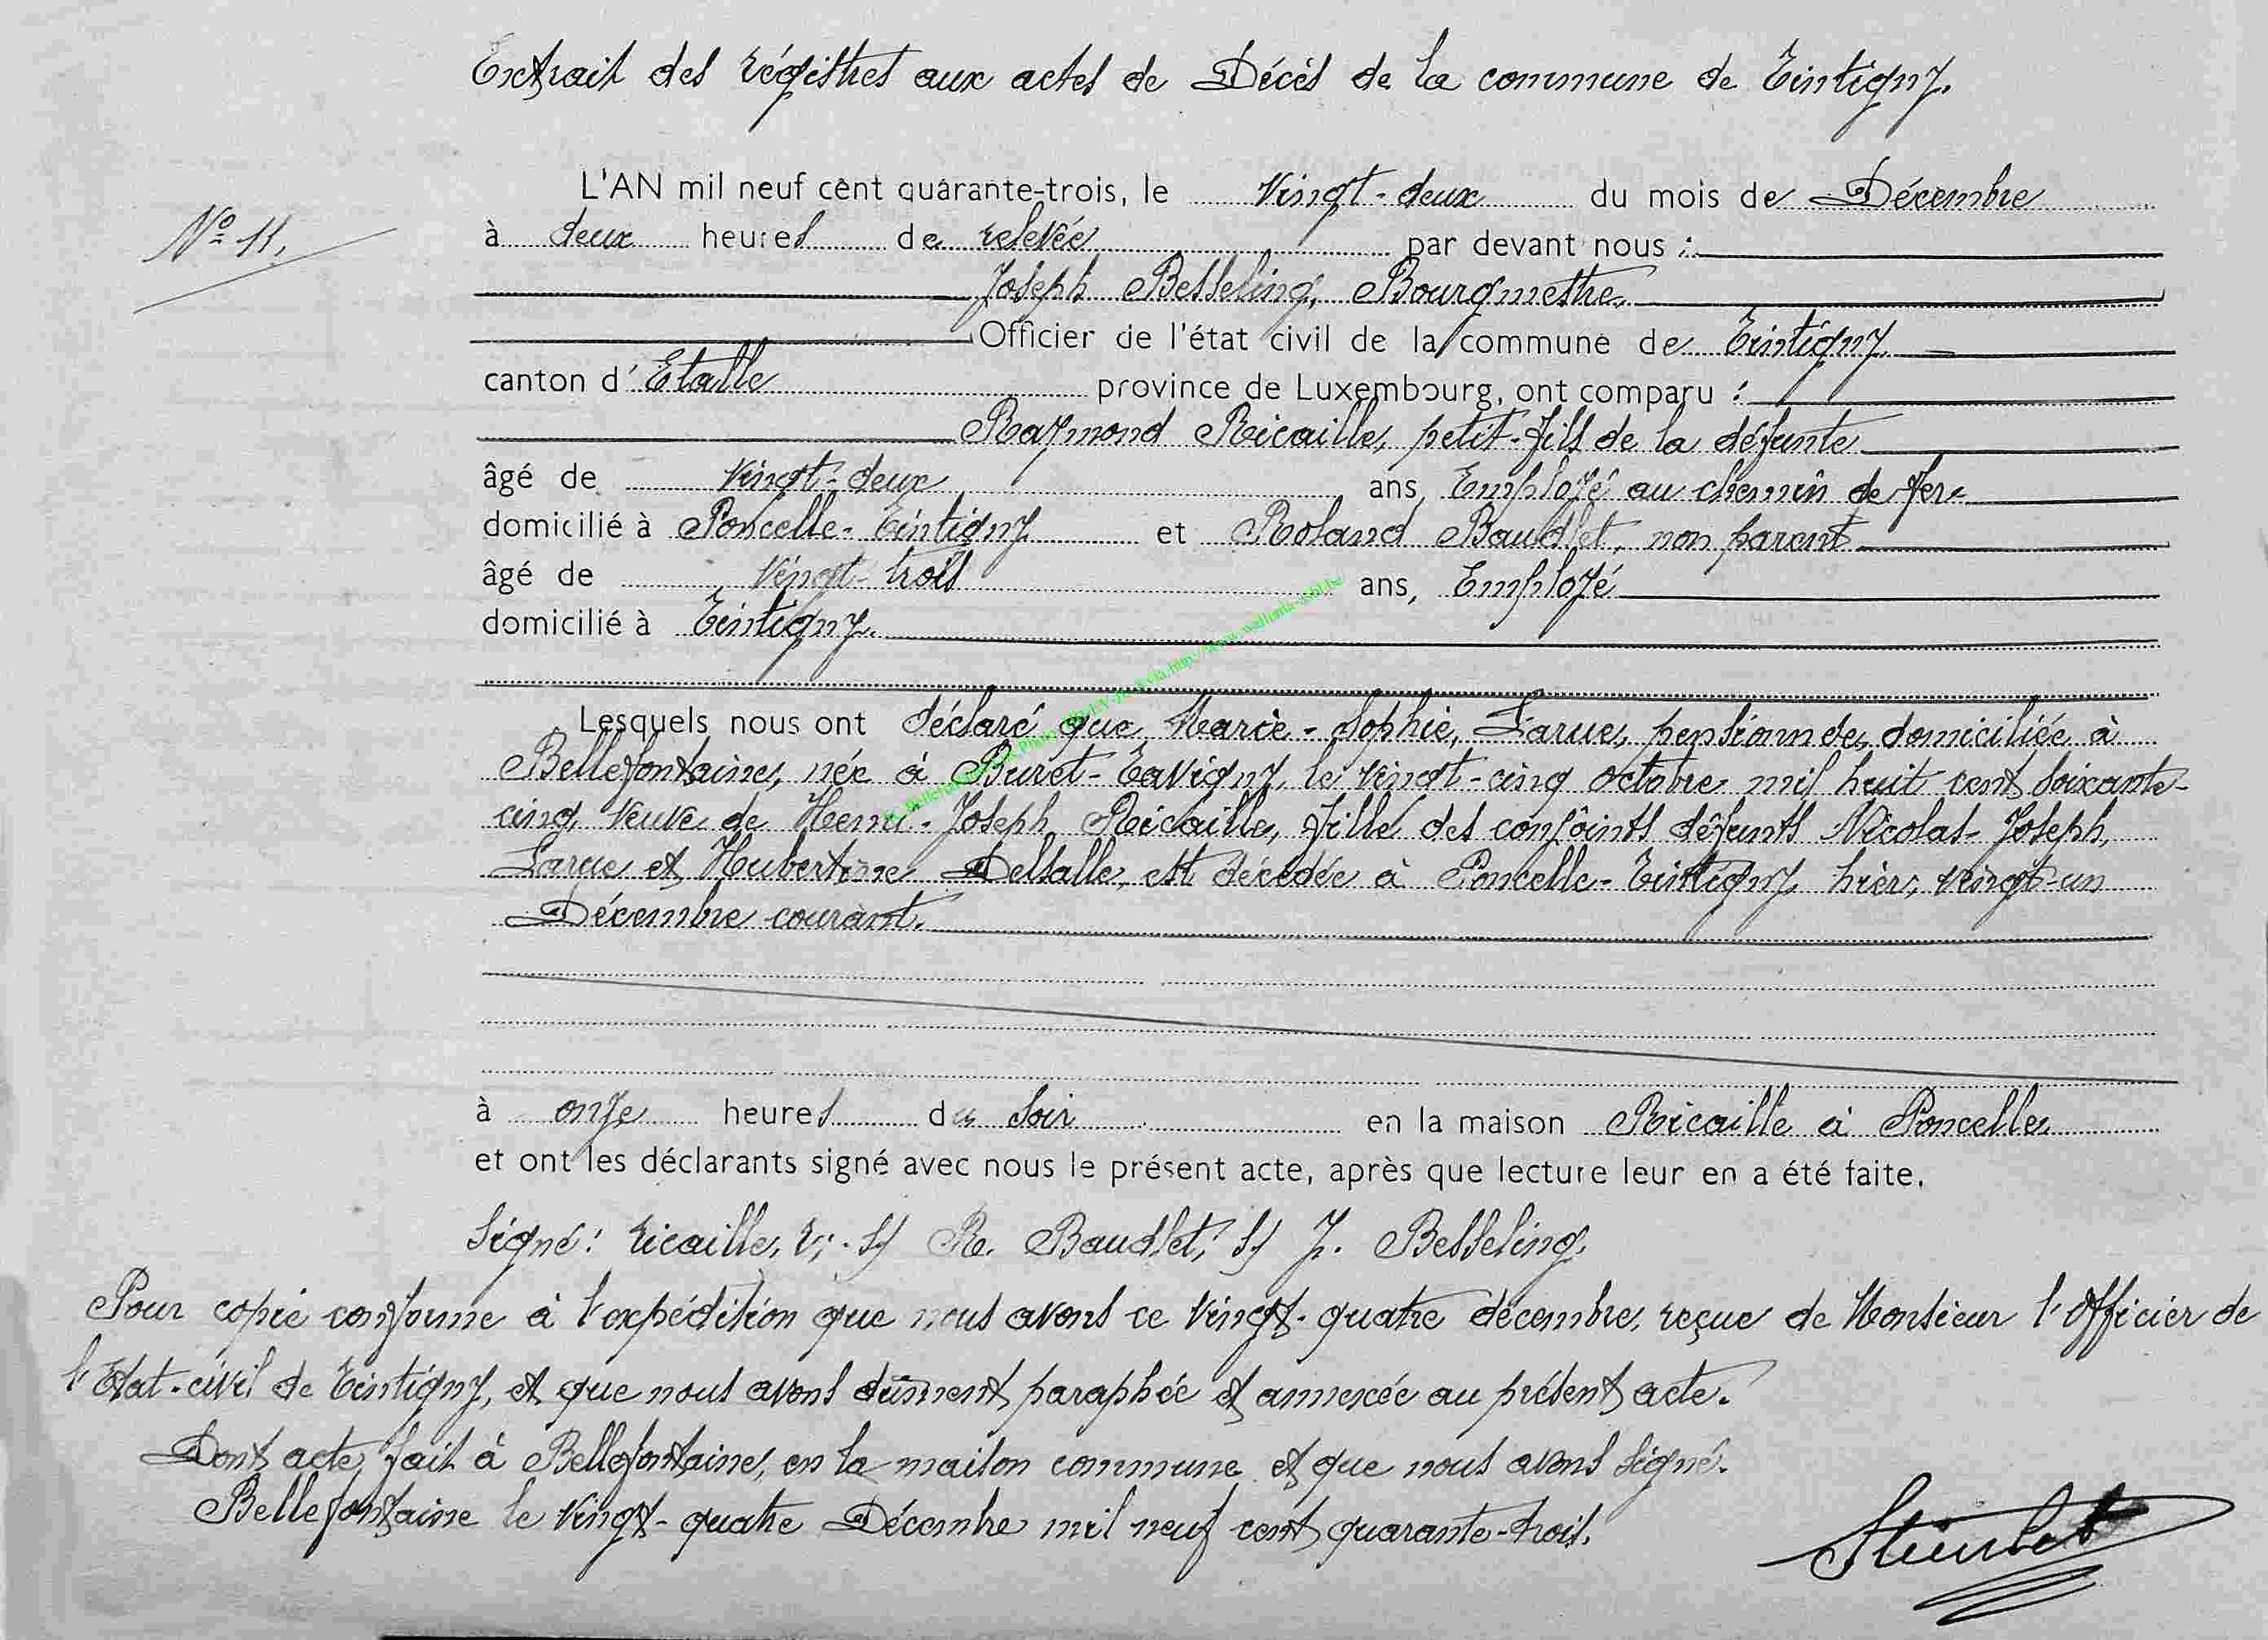 Extrait des régistres aux actes de Décès de la commune de Tintigny.
L'AN mil neuf cent quarante-trois, le Vingt-deux du mois de Décembre
N° 11.
à deux heures de relevée par devant nous :
Joseph Besseling, Bourgmestre
Officier de l'état civil de la commune de Tintigny
canton d'Etalle province de Luxembourg, ont comparu :
Raymond Ricaille, petit-fils de la défunte
âgé de Vingt-deux ans, Employé au chemin de fer
domicilié à Poncelle-Tintigny et Roland Baudlet, non parent
âgé de Vingt-trois ans, Employé
domicilié à Tintigny.
Lesquels nous ont déclaré que Marie-Sophie, Larue, pensionnée, domiciliée à
Bellefontaine, née à Buret-Tavigny, le vingt-cinq octobre mil huit cent soixante-
cinq, Veuve de Henri-Joseph Ricaille, fille des conjoints défunts Nicolas-Joseph,
Larue et Hubertine Delsalle, est décédée à Poncelle-Tintigny hier, vingt-un
Décembre courant.
à onze heures du soir en la maison Ricaille à Poncelle
et ont les déclarants signé avec nous le présent acte, après que lecture leur en a été faite.
Signé: Ricaille, R. S/ R. Baudlet, S/ J. Besseling.
Pour copie conforme à l'expédition que nous avons ce Vingt-quatre décembre, reçue de Monsieur l'Officier de
l'Etat-civil de Tintigny, et que nous avons dûment paraphée et annexée au présent acte.
Dont acte, fait à Bellefontaine, en la maison commune et que nous avons signé.
Bellefontaine le Vingt-quatre Décembre mil neuf cent quarante-trois.